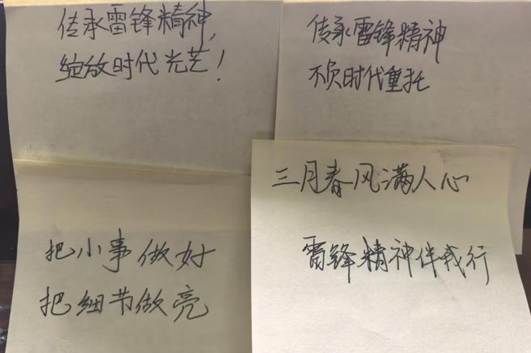 传承雷锋精神,
绽放时代光艺!
传承雷锋精神
不负时代重托
把小事做好
把细节做亮
三月春风满人心
雷锋精神伴我行